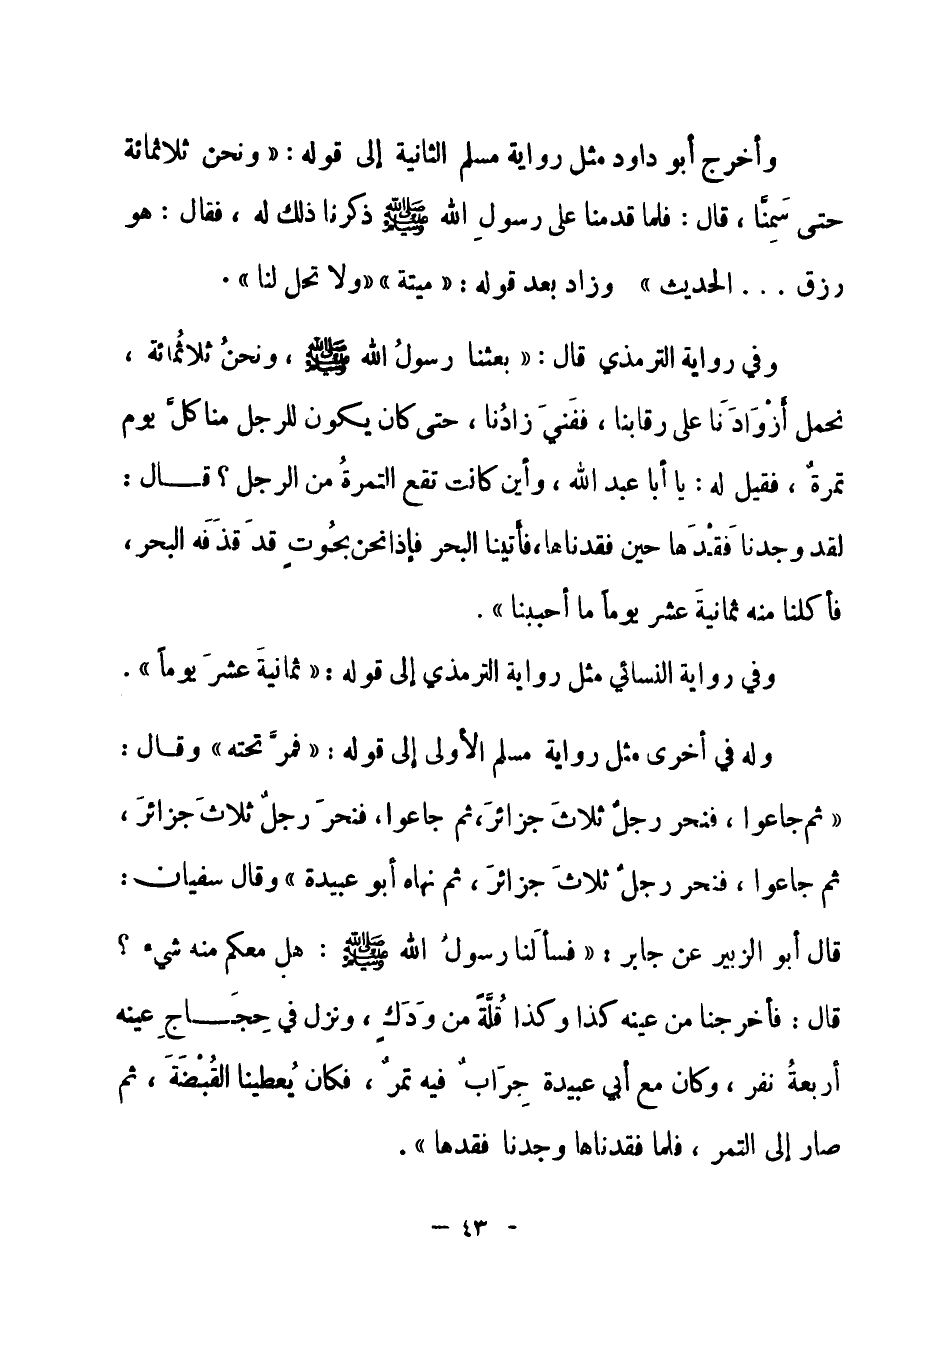 وأخرج أبو داود مثل رواية مسلم الثانية إلى قوله : « ونحن ثلاثمائة
حتى سَمِنَّا ، قال : فلما قدمنا على رسولِ الله ﷺ ذكرنا ذلك له ، فقال : هو
رزق ... الحديث » وزاد بعد قوله : « ميتة » « ولا تحل لنا » .
وفي رواية الترمذي قال : « بعثنا رسولُ الله ﷺ ، ونحنُ ثلاثُمائة ،
نحمل أَزْوَادَنَا على رقابنا ، ففَنيَ زادُنا ، حتى كان يكون للرجل منا كلَّ يوم
تمرةٌ ، فقيل له : يا أبا عبد الله ، وأين كانت تقع التمرةُ من الرجل ؟ قـــال :
لقد وجدنا فَقْدَها حين فقدناها ، فأتينا البحر فإذا نحن بحُوتٍ قد قذَفَه البحر ،
فأكلنا منه ثمانيةَ عشر يوماً ما أحببنا » .
وفي رواية النسائي مثل رواية الترمذي إلى قوله : « ثمانيةَ عشرَ يوماً » .
وله في أخرى مثل رواية مسلم الأولى إلى قوله : « فمرَّ تحته » وقـال :
« ثم جاعوا ، فنحر رجلٌ ثلاثَ جزائرَ ، ثم جاعوا ، فنحرَ رجلٌ ثلاثَ جزائرَ ،
ثم جاعوا ، فنحر رجلٌ ثلاثَ جزائرَ ، ثم نهاه أبو عبيدة » وقال سفيان :
قال أبو الزبير عن جابر : « فسألَنا رسولُ الله ﷺ : هل معكم منه شيء ؟
قال : فأخرجنا من عينه كذا وكذا قُلَّةً من وَدَكٍ ، ونزل في حِجَــاجِ عينه
أربعةُ نفر ، وكان مع أبي عبيدة جِرَابٌ فيه تمرٌ ، فكان يُعطينا القُبْضَةَ ، ثم
صار إلى التمر ، فلما فقدناها وجدنا فقدها » .
- ٤٣ -